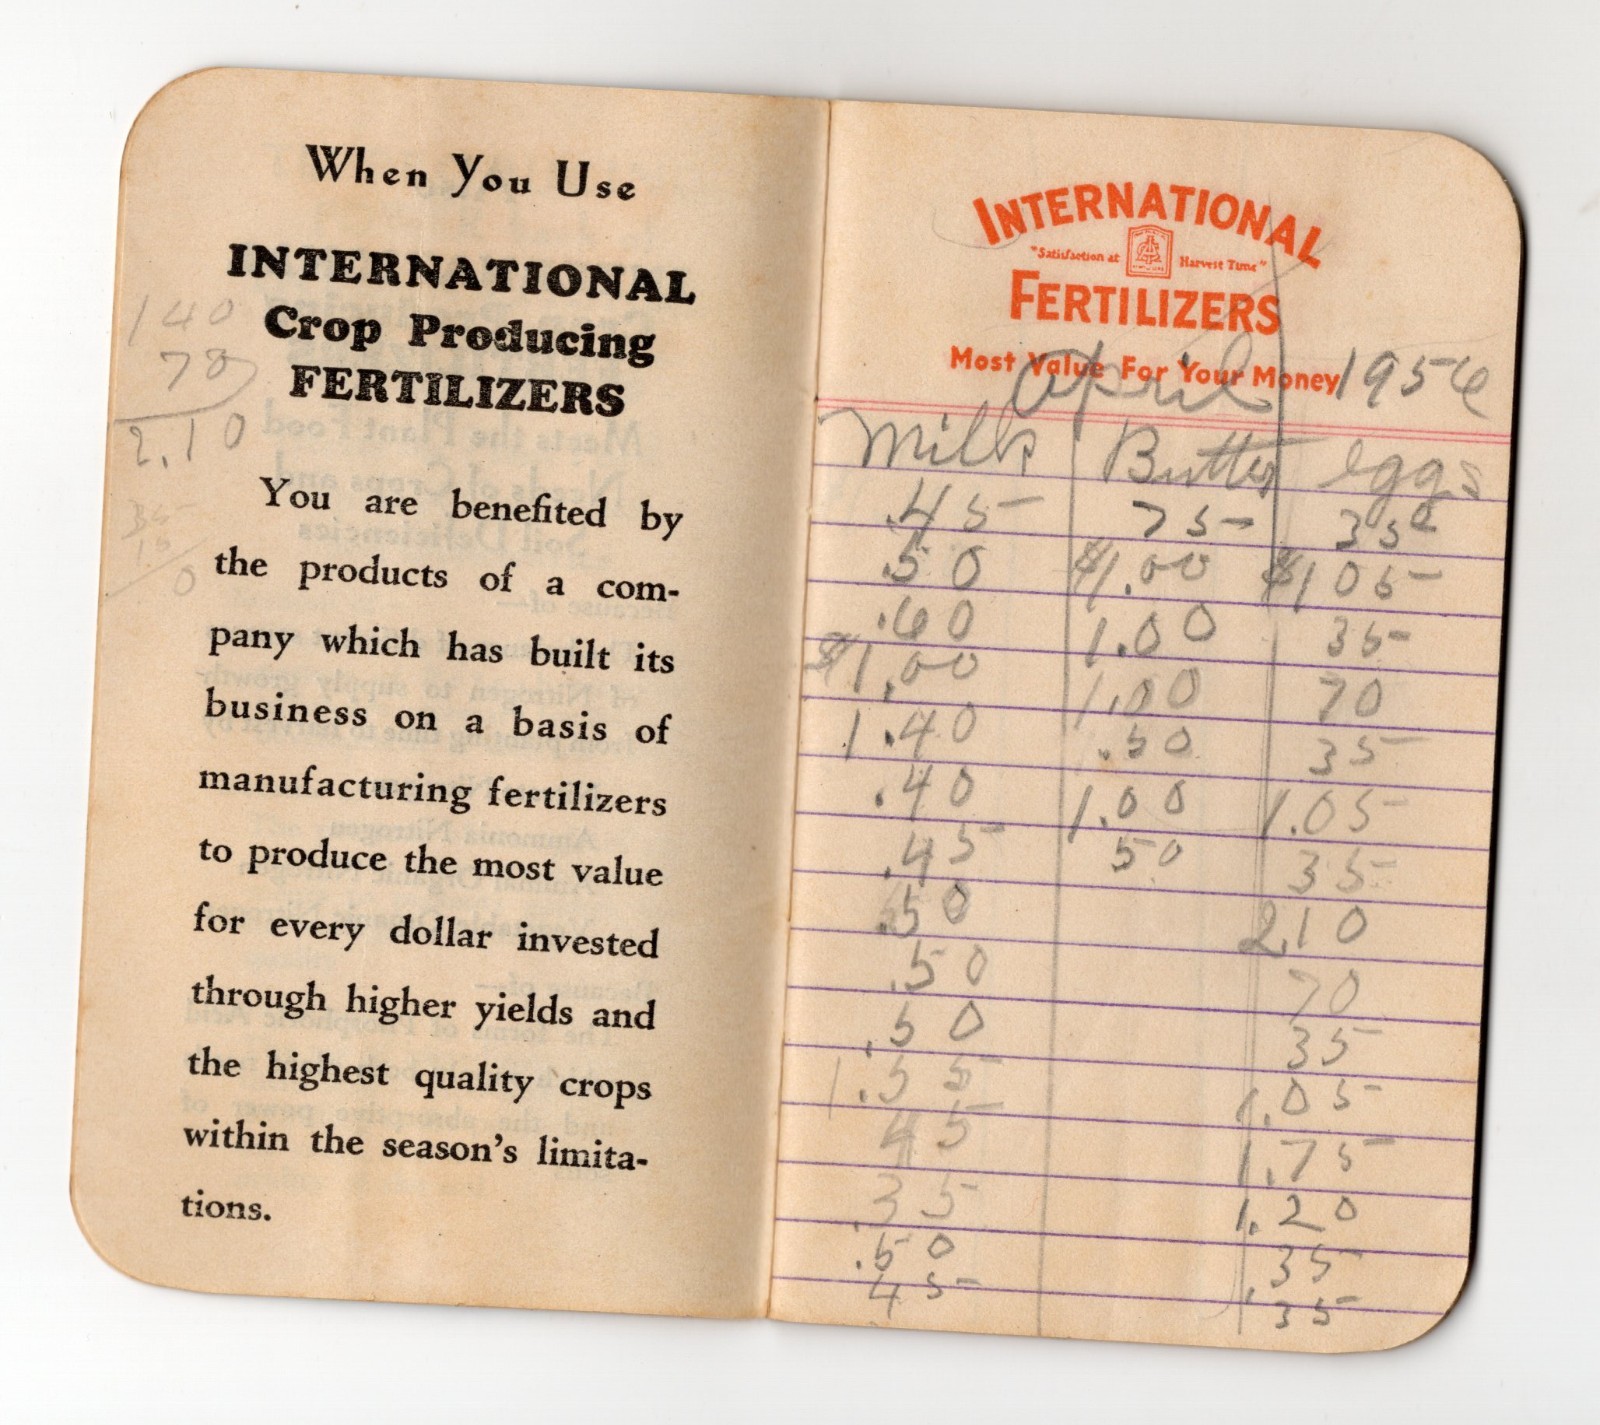 When You Use
INTERNATIONAL
Crop Producing
FERTILIZERS
140
70
2.10
35
0
You are benefited by
the products of a com-
pany which has built its
business on a basis of
manufacturing fertilizers
to produce the most value
for every dollar invested
through higher yields and
the highest quality crops
within the season's limita-
tions.
INTERNATIONAL
"Satisfaction at Harvest Time"
FERTILIZERS
Most Value For Your Money
April 1956
Milk Butter eggs
.45 75 35¢
.50 $1.00 $105
.60 1.00 35
$1.00 1.00 70
1.40 .50 35
.40 1.00 1.05
.45 50 35
.50 2.10
.50 70
.50 35
1.55 1.05
45 1.75
.35 1.20
.50 .35
45 35